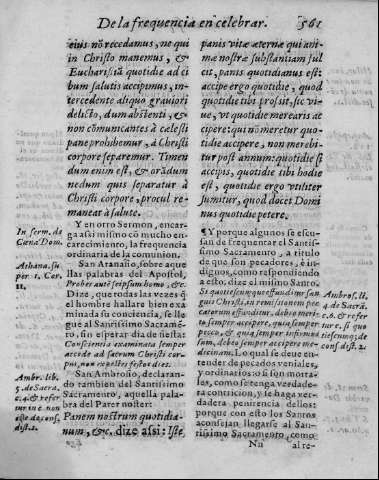 De la frequencia en celebrar. 561
eius nõ recedamus, ne qui
in Christo manemus, &
Eucharistiã quotidie ad ci
bum salutis accipimus, in-
tercedente aliquo grauiori
delicto, dum abstenti, &
non cõmunicantes à cælesti
pane prohibemur, à Christi
corpore separemur. Timen
dum enim est, & orãdum
nedum quis separatur à
Christi corpore, procul re-
maneat à salute.
Y en otro Sermon, encar-
ga assi mismo cõ mucho en-
carecimiento, la frequencia
ordinaria de la comunion.
San Atanasio, sobre aque
llas palabras del Apostol,
Probet autẽ seipsum homo, &c.
Dize, que todas las vezes q̃
el hombre hallare bien exa
minada su conciencia, se lle
gue al Santissimo Sacramẽ-
to, sin esperar dia de fiesta:
Conscientia examinata semper
accede ad sacrum Christi cor-
pus, non respectes festos dies.
San Ambrosio, declaran-
do tambien del Santissimo
Sacramento, aquella pala-
bra del Pater noster:
Panem nostrum quotidia-
num, &c. dize assi: Iste
In serm. de
Cœna Dom.
Athana. su
per 1. Cor.
11.
Ambr. lib.
5. de Sacra.
c. 4. & refer
tur in c. non
iste de cons.
dist. 2.
panis vitæ æternæ qui ani-
mæ nostræ substantiam ful
cit, panis quotidianus est:
accipe ergo quotidie, quod
quotidie tibi prosit, sic vi-
ue, vt quotidie merearis ac
cipere: qui nõ meretur quo-
tidie accipere, non merebi-
tur post annum: quotidie si
accipis, quotidie tibi hodie
est, quotidie ergo vtiliter
sumitur, quod docet Domi
nus quotidie petere.
¶ Y porque algunos se escu-
san de frequentar el Santis-
simo Sacramento, a titulo
de que son pecadores, è in-
dignos, como respondiendo
a esto, dize al mismo Santo.
Si quotiescunque effunditur san
guis Christi, in remissionem pec
catorum effunditur, debeo meri-
to semper accipere, quia semper
pecco, & quia semper infirmus
sum, debeo semper accipere me-
dicinam. Lo qual se deue en-
tender de pecados veniales,
y ordinarios: o si son morta-
les, como se tenga verdade-
ra contricion, y se haga ver-
dadera penitencia dellos:
porque con esto los Santos
aconsejan llegarse al San-
tissimo Sacramento, como
Nn al re-
Ambros. li.
4. de Sacrã.
c. 6. & refer
tur c. si quo
tiescunq; de
cons. dist. 2.